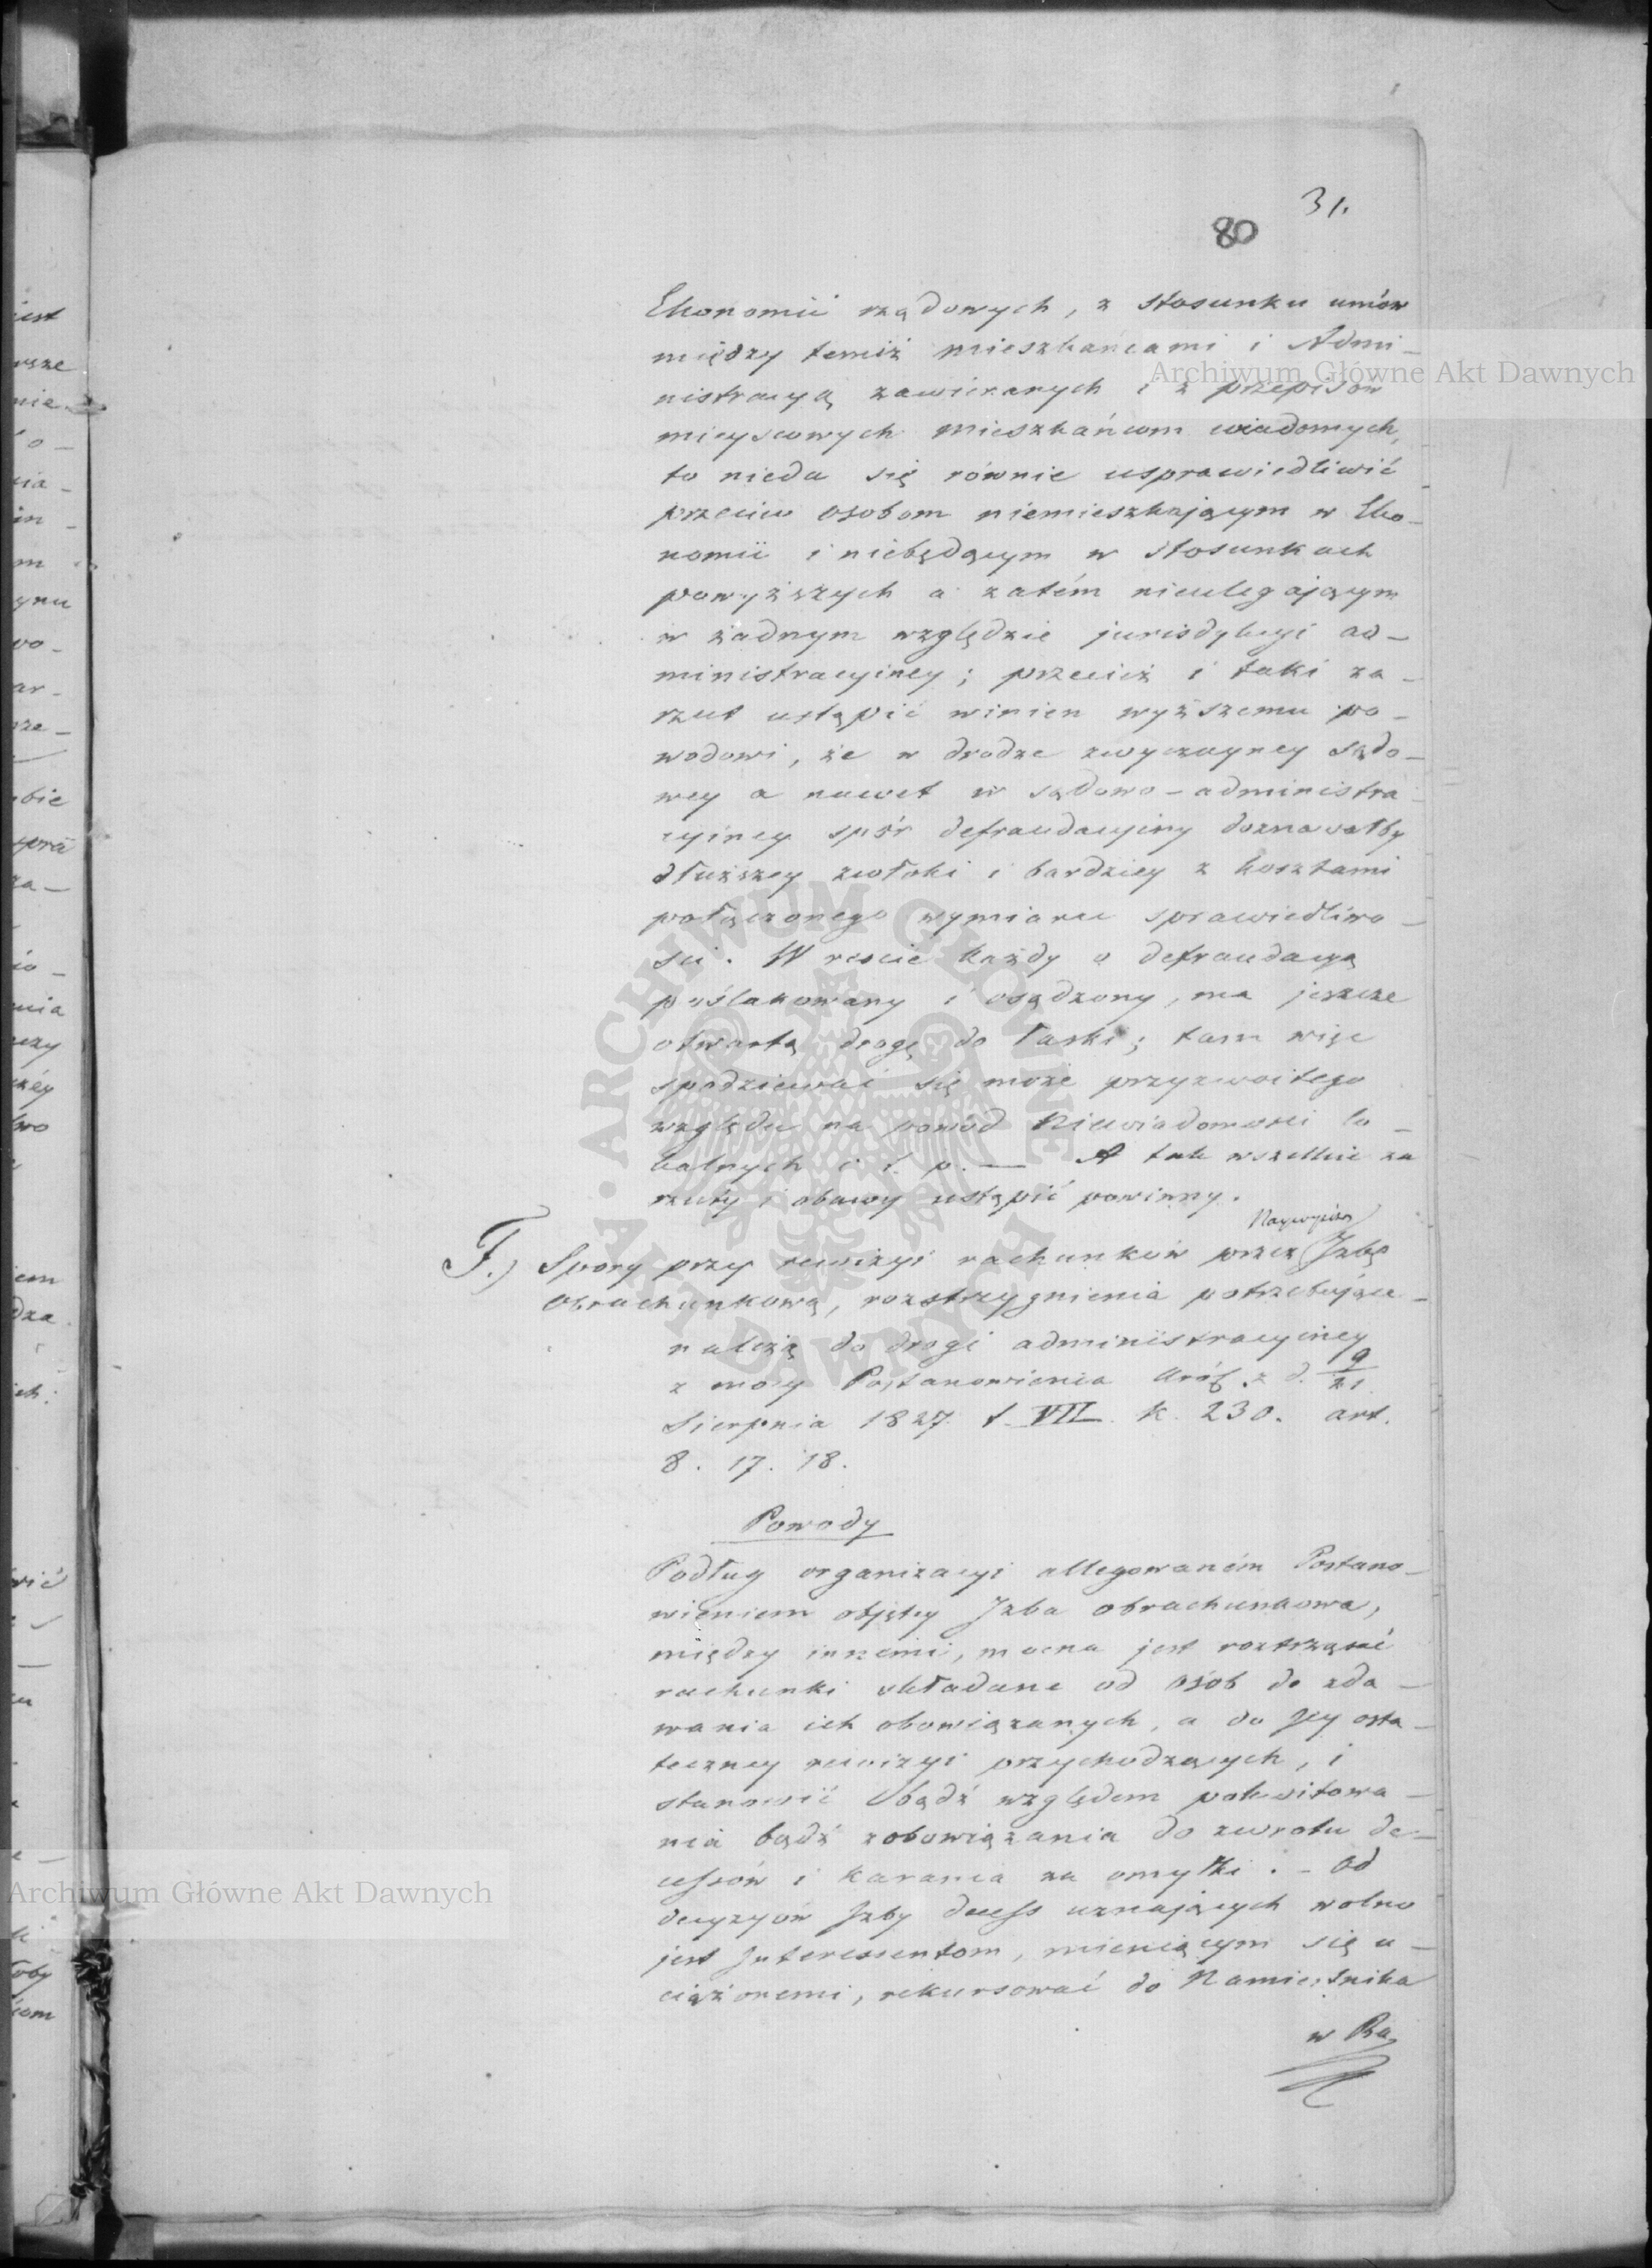 31.
80
Ekonomii rządowych, z stosunku umów
między temiż mieszkańcami i Admi-
nistracyą zawieranych i z przepisów
mieyscowych mieszkańcom wiadomych,
to nieda się równie usprawiedliwić
przeciw osobom niemieszkającym w Eko-
nomii i niebędącym w stosunkach
powyższych a zatém nieulegającym
w żadnym względzie jurisdykcyi ad-
ministracyiney; przecież i taki za-
rzut ustąpić winien wyższemu po-
wodowi, że w drodze zwyczayney sądo-
wey a nawet w sądowo-administra-
cyiney spór defraudacyiny doznawałby
dłuższey zwłoki i bardziey z kosztami
połączonego wymiaru sprawiedliwo-
sci. W reście każdy o defraudacyą
poślakowany i osądzony, ma jeszcze
otwartą drogę do łaski; tam więc
spodziewać się może przyzwoitego
względu na powód niewiadomości lo-
kalnych i t. p. — A tak wszelkie za
rzuty i obawy ustąpić powinny.
Naywyższą
F.) Spory przy rewizyi rachunków przez Jzbę
Obrachunkową, rozstrzygnienia potrzebujące-
należą do drogi administracyiney
z mocy Postanowienia Król. z d. 9/21
Sierpnia 1827 t. VII. k. 230. art.
8. 17. 18.
Powody
Podług organizacyi allegowaném Postano-
wieniem objętey Jzba obrachunkowa,
między innemi, mocna jest roztrząsać
rachunki składane od osób do zda-
wania ich obowiązanych, a do Jey osta-
teczney rewizyi przychodzących, i
stanowić bądź względem pokwitowa-
nia bądź zobowiązania do zwrotu de-
cessów i karania za omyłki. - Od
decyzyów Jzby decess uznających wolno
jest Jnteressentom, mieniącym się u-
ciążonemi, rekursować do Namiestnika
w Ra
Archiwum Główne Akt Dawnych
Archiwum Główne Akt Dawnych
ARCHIWUM GŁÓWNE AKT DAWNYCH